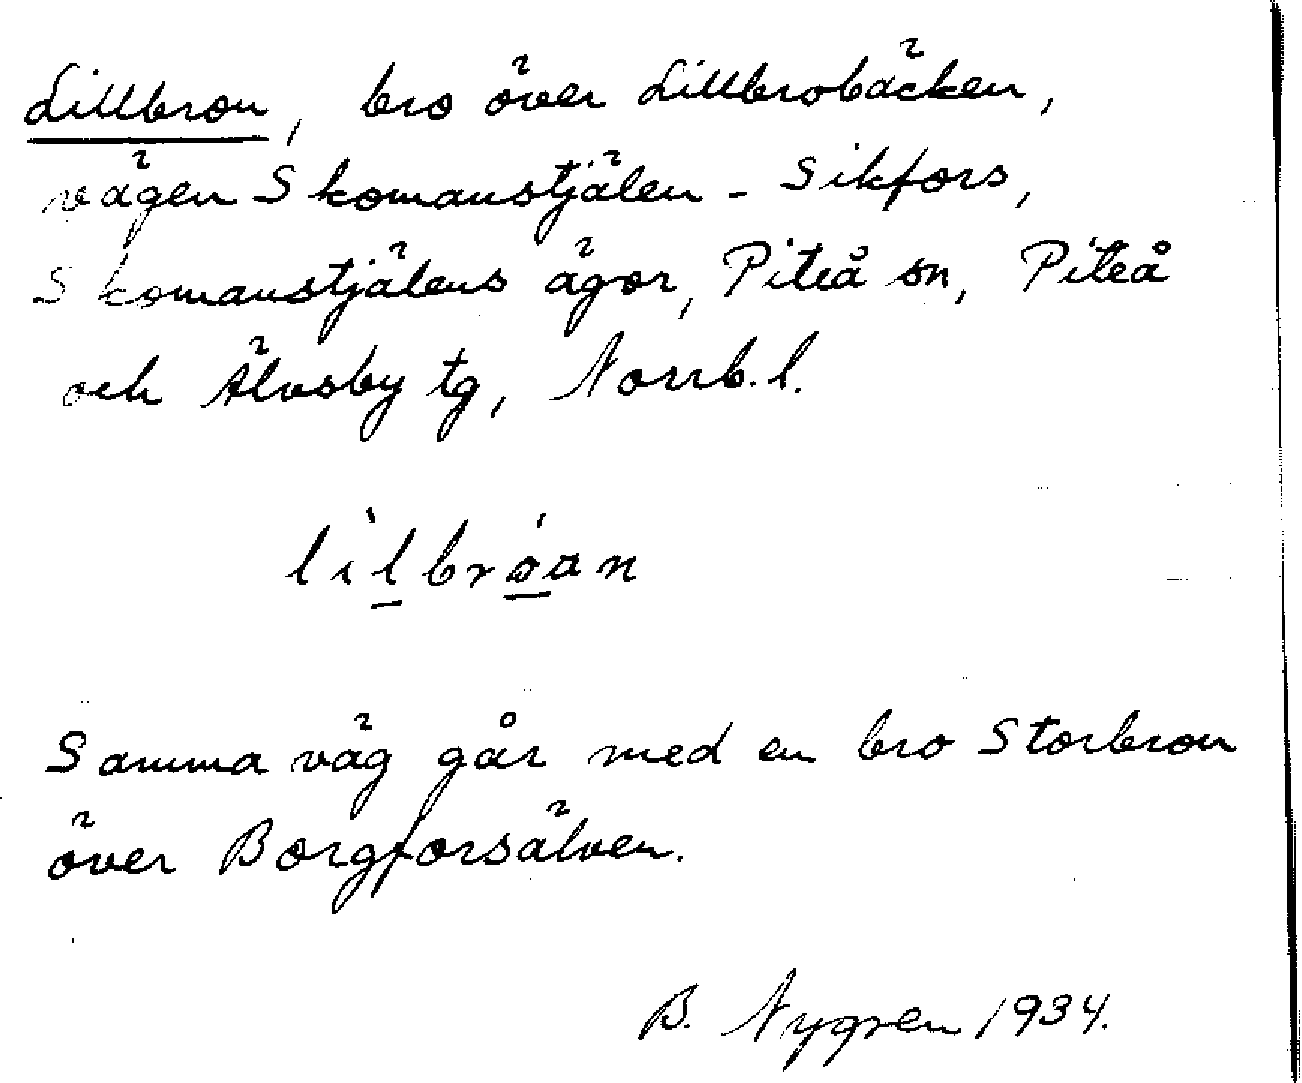 Lillbron, bro över Lillbrobäcken,
vägen Skomanstjälen - Sikfors,
Skomanstjälens ägor, Piteå sn, Piteå
och Älvsby tg, Norrb. l.
lìlbróan
Samma väg går med en bro Storbron
över Borgforsälven.
B. Nygren 1934.